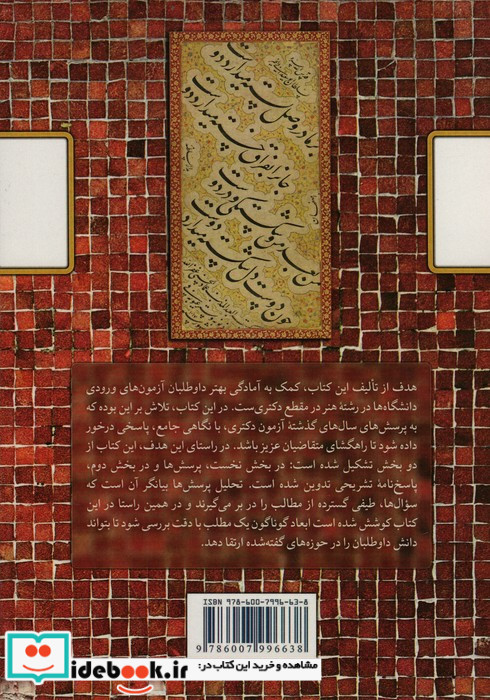 بر ما در وصل بسته میدارد دوست
من بعد من و شکستگی و در دوست
چون دوست دل شکسته میدارد دوست
هدف از تألیف این کتاب، کمک به آمادگی بهتر داوطلبان آزمون‌های ورودی
دانشگاه‌ها در رشتهٔ هنر در مقطع دکتری‌ست. در این کتاب، تلاش بر این بوده که
به پرسش‌های سال‌های گذشتهٔ آزمون دکتری، با نگاهی جامع، پاسخی درخور
داده شود تا راهگشای متقاضیان عزیز باشد. در راستای این هدف، این کتاب از
دو بخش تشکیل شده است: در بخش نخست، پرسش‌ها و در بخش دوم،
پاسخ‌نامهٔ تشریحی تدوین شده است. تحلیل پرسش‌ها بیانگر آن است که
سؤال‌ها، طیفی گسترده از مطالب را در بر می‌گیرند و در همین راستا در این
کتاب کوشش شده است ابعاد گوناگون یک مطلب با دقت بررسی شود تا بتواند
دانش داوطلبان را در حوزه‌های گفته‌شده ارتقا دهد.
ISBN 978-600-7996-63-8
9786007996638
idebook.ir
مشاهده و خرید این کتاب در: